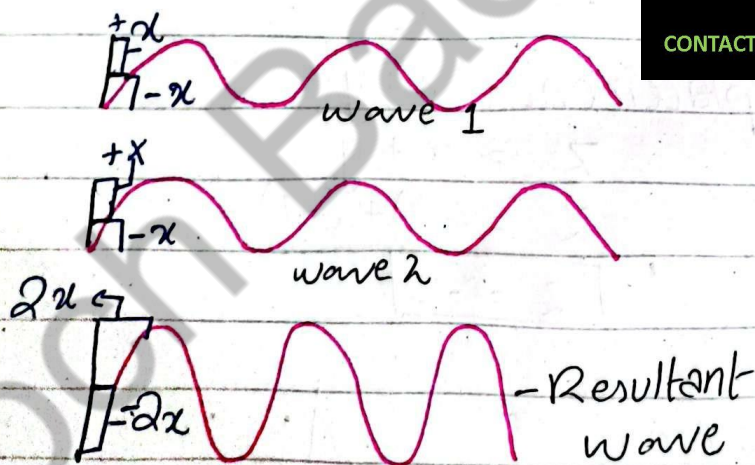 CONTACT
+x
-x
wave 1
+x
-x
wave 2
2x
-2x
-Resultant
wave